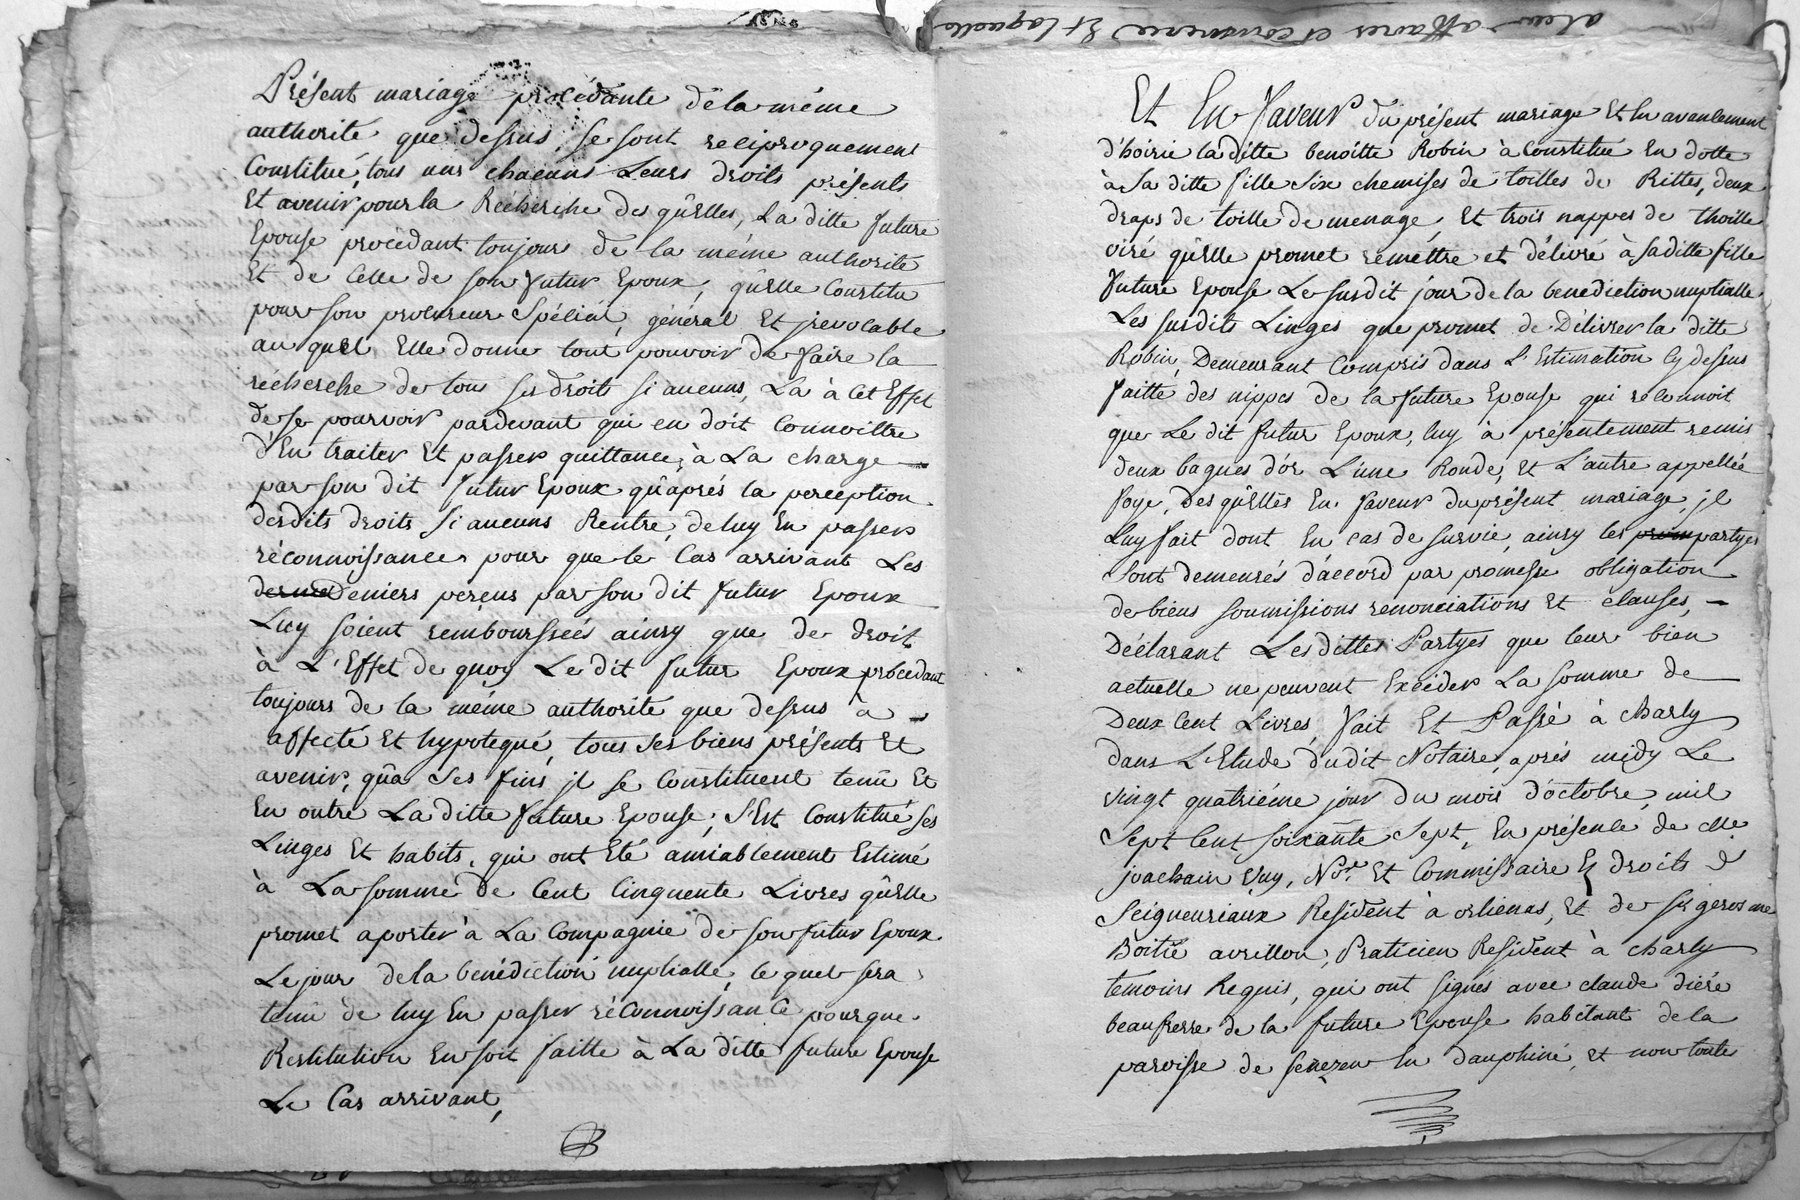 Présent mariage procédante de la même
authorité que dessus, se sont reciproquement
Constitué, tous uns chacuns Leurs droits présents
Et avenir pour la Récherche des qûelles, La ditte future
Epouse procédant toujours de la même authorité
Et de Celle de son futur Epoux, qûelle Constitu
pour son procureur Spécial, général Et jrevocable
au quel Elle donne tout pouvoir de faire la
récherche de tous ses droits si aucuns, La à Cet Effet
de se pourvoir pardevant qui en doit Connoittre
d'En traiter Et passer quittance, à La charge
par son dit futur Epoux qûaprés la perception
desdits droits Si aucuns Rentre, de luy En passer
réconnoissance pour que le Cas arrivant Les
Deniers perçus par son dit futur Epoux
Luy soient rembourssées ainsy que de droit
à L'Effet de quoy Le dit futur Epoux procédant
toujours de la même authorité que dessus à
affecté Et hypotequé, tous ses biens présents Et
avenir, qûa Ses fins jl se Constituent tenû Et
En outre La ditte future Epouse, S'Est Constitué ses
Linges Et habits, qui ont Eté amiablement Estimé
à La somme de Cent Cinquente Livres qûelle
promet aporter à La Compagnie de son futur Epoux
Le jour de la benédiction nuptialle, le quel sera
tenû de luy En passer réconnoissance pour que
Restitution En soit faitte à La ditte future Epouse
Le Cas arrivant,
Et En faveur du présent mariage Et En avancement
d'hoirie la ditte benoitte Robin à Constitué En dotte
à Sa ditte fille Six chemises de toilles de Rittes, deux
draps de toille de menage, Et trois nappes de thoille
viré qûelle promet remettre et délivré à Saditte fille
future Epouse Le susdit jour de la benediction nuptialle
Les susdits Linges que promet de Délivrer la ditte
Robin, Demeurant Compris dans L'Estimation Cy dessus
faitte des nippes de la future Epouse qui reconnoit
que Le dit futur Epoux, luy à présentement remis
deux bagues d'or L'une Ronde, et L'autre appellée
foye, des qûelles En faveur du présent mariage, jl
Luy fait dont En cas de survie, ainsy les partyes
Sont demeurés d'accord par promesse obligation
de biens soumissions renonciations Et clauses,
Déclarant Les dittes Partyes que leur bien
actuelle ne peuvent Excéder La somme de
Deux Cent Livres, fait Et Passé à charly
dans L'Etude dudit Notaire, aprés midy Le
vingt quatriéme jour du mois d'octobre, mil
Sept Cent soixante Sept, En présence de Me
joachain Guy, Nore Et Commissaire En droits
Seigneuriaux Résident à orlienas, Et de
Boitié avrillon, Praticien Résident à charly
temoins Requis, qui ont signés avec claude diére
beaufrerre de la future Epouse habitant de la
paroisse de En dauphiné, et non toutes
alew affaires et conscience Et laquelle